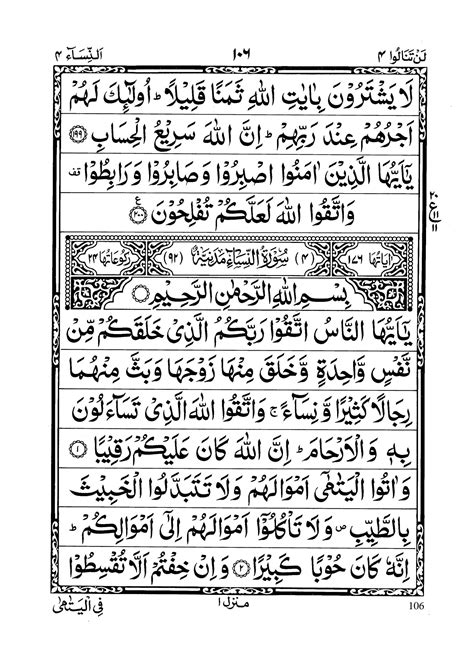 لَنْ تَنَالُوا ٤ ١٠٦ اَلنِّسَآء ٤
لَا يَشْتَرُوْنَ بِاٰيٰتِ اللّٰهِ ثَمَنًا قَلِيْلًا ؕ اُولٰٓئِكَ لَهُمْ
اَجْرُهُمْ عِنْدَ رَبِّهِمْ ؕ اِنَّ اللّٰهَ سَرِيْعُ الْحِسَابِ ۝١٩٩
يٰۤاَيُّهَا الَّذِيْنَ اٰمَنُوا اصْبِرُوْا وَصَابِرُوْا وَرَابِطُوْا قف
وَاتَّقُوا اللّٰهَ لَعَلَّكُمْ تُفْلِحُوْنَ ۝٢٠٠ ع
٢٠
ع ١١
١١
اٰيَاتُهَا ١٧٦ (٤) سُوْرَةُ النِّسَآءِ مَدَنِيَّةٌ (٩٢) رُكُوْعَاتُهَا ٢٤
بِسْمِ اللّٰهِ الرَّحْمٰنِ الرَّحِيْمِ ۝
يٰۤاَيُّهَا النَّاسُ اتَّقُوْا رَبَّكُمُ الَّذِيْ خَلَقَكُمْ مِّنْ
نَّفْسٍ وَّاحِدَةٍ وَّخَلَقَ مِنْهَا زَوْجَهَا وَبَثَّ مِنْهُمَا
رِجَالًا كَثِيْرًا وَّنِسَآءً ۚ وَاتَّقُوا اللّٰهَ الَّذِيْ تَسَآءَلُوْنَ
بِهٖ وَالْاَرْحَامَ ؕ اِنَّ اللّٰهَ كَانَ عَلَيْكُمْ رَقِيْبًا ۝١
وَاٰتُوا الْيَتٰمٰۤى اَمْوَالَهُمْ وَلَا تَتَبَدَّلُوا الْخَبِيْثَ
بِالطَّيِّبِ ۪ وَلَا تَاْكُلُوْۤا اَمْوَالَهُمْ اِلٰۤى اَمْوَالِكُمْ ؕ
اِنَّهٗ كَانَ حُوْبًا كَبِيْرًا ۝٢ وَاِنْ خِفْتُمْ اَلَّا تُقْسِطُوْا
106 منزل ١ فِي الْيَتٰمٰى